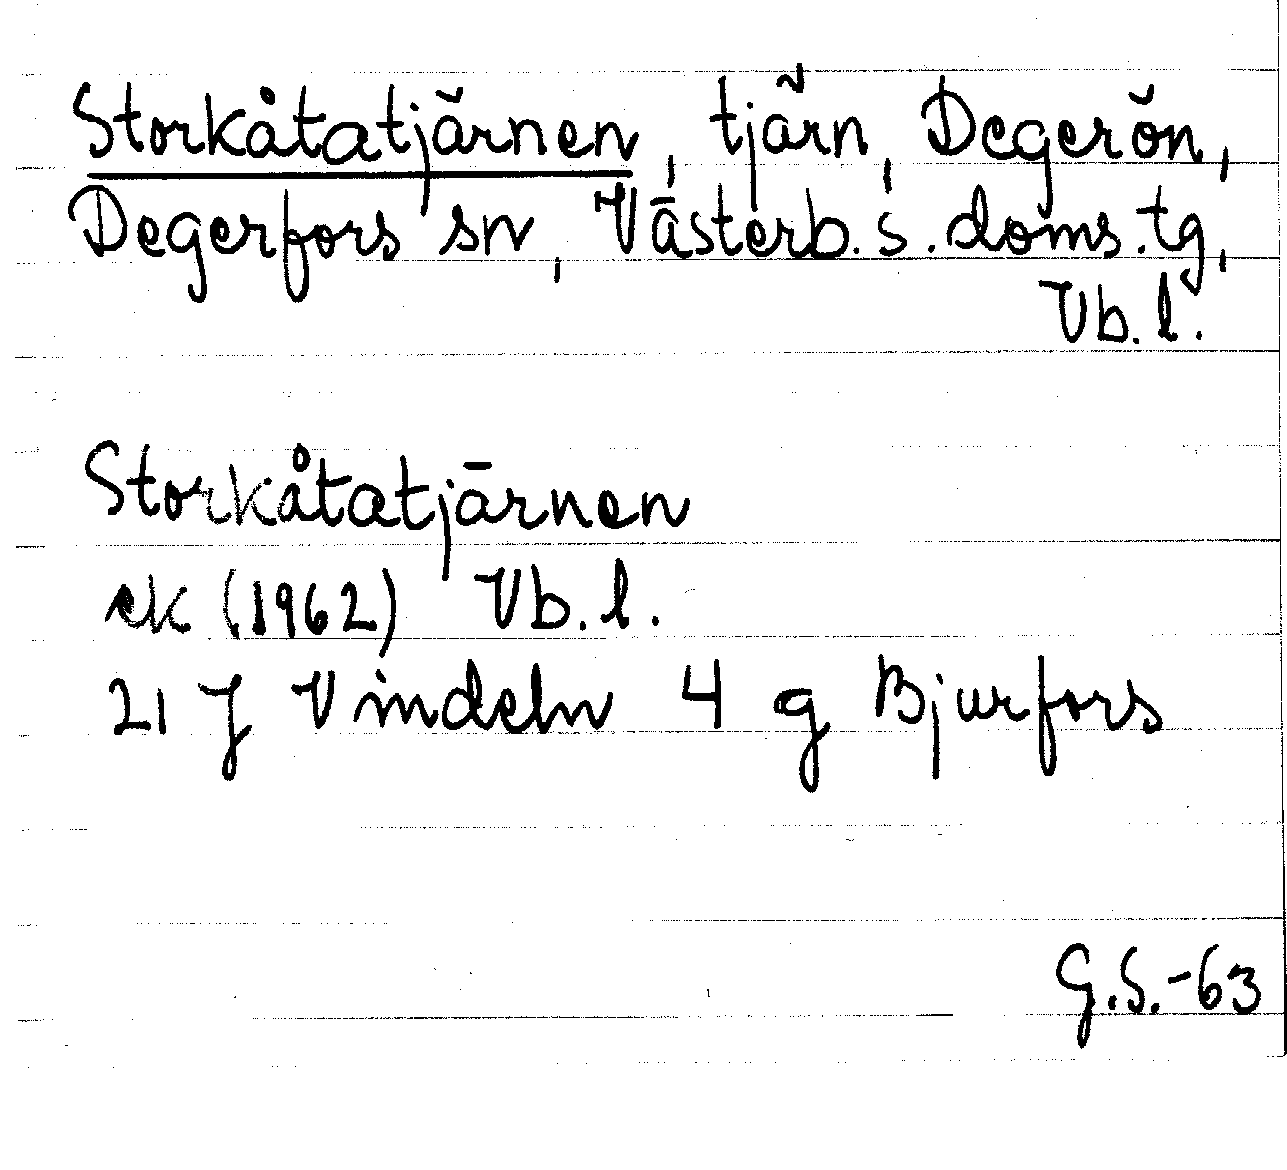 Storkåtatjärnen, tjärn, Degerön,
Degerfors sn, Västerb. s. doms. tg,
Vb. l.
Storkåtatjärnen
ek (1962) Vb. l.
21 J Vindeln 4 g Bjurfors
G.S.-63